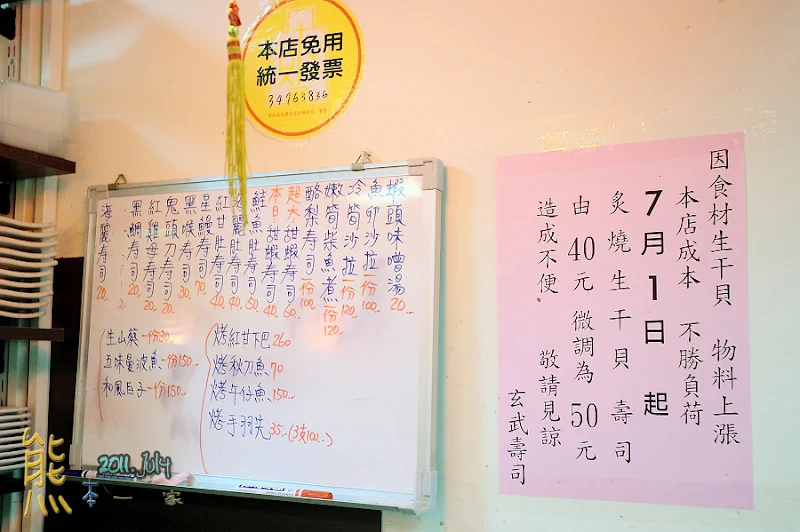 本店免用
統一發票
34763836
蝦頭味噌湯20..
魚卵沙拉一份100..
冷筍沙拉一份120..
嫩筍柴魚煮一份120..
酪梨壽司一份100..
超大甜蝦壽司60..
本日甜蝦壽司40..
鮭魚肚壽司50..
海鱺肚壽司40..
紅甘肚壽司40..
星鰻壽司70..
黑喉壽司30..
鬼頭刀壽司20..
紅雞母壽司20..
黑鯛壽司2
海鱺壽司20..
生山葵一份30..
五味章波魚一份150..
和風白子一份150..
烤紅甘下巴260
烤秋刀魚70
烤午仔魚150..
烤手羽先35..(3支100..)
因食材生干貝 物料上漲
本店成本 不勝負荷
7月1日 起
炙燒生干貝 壽司
由40元微調為50元
造成不便 敬請見諒
玄武壽司
熊
本一家
2011.July